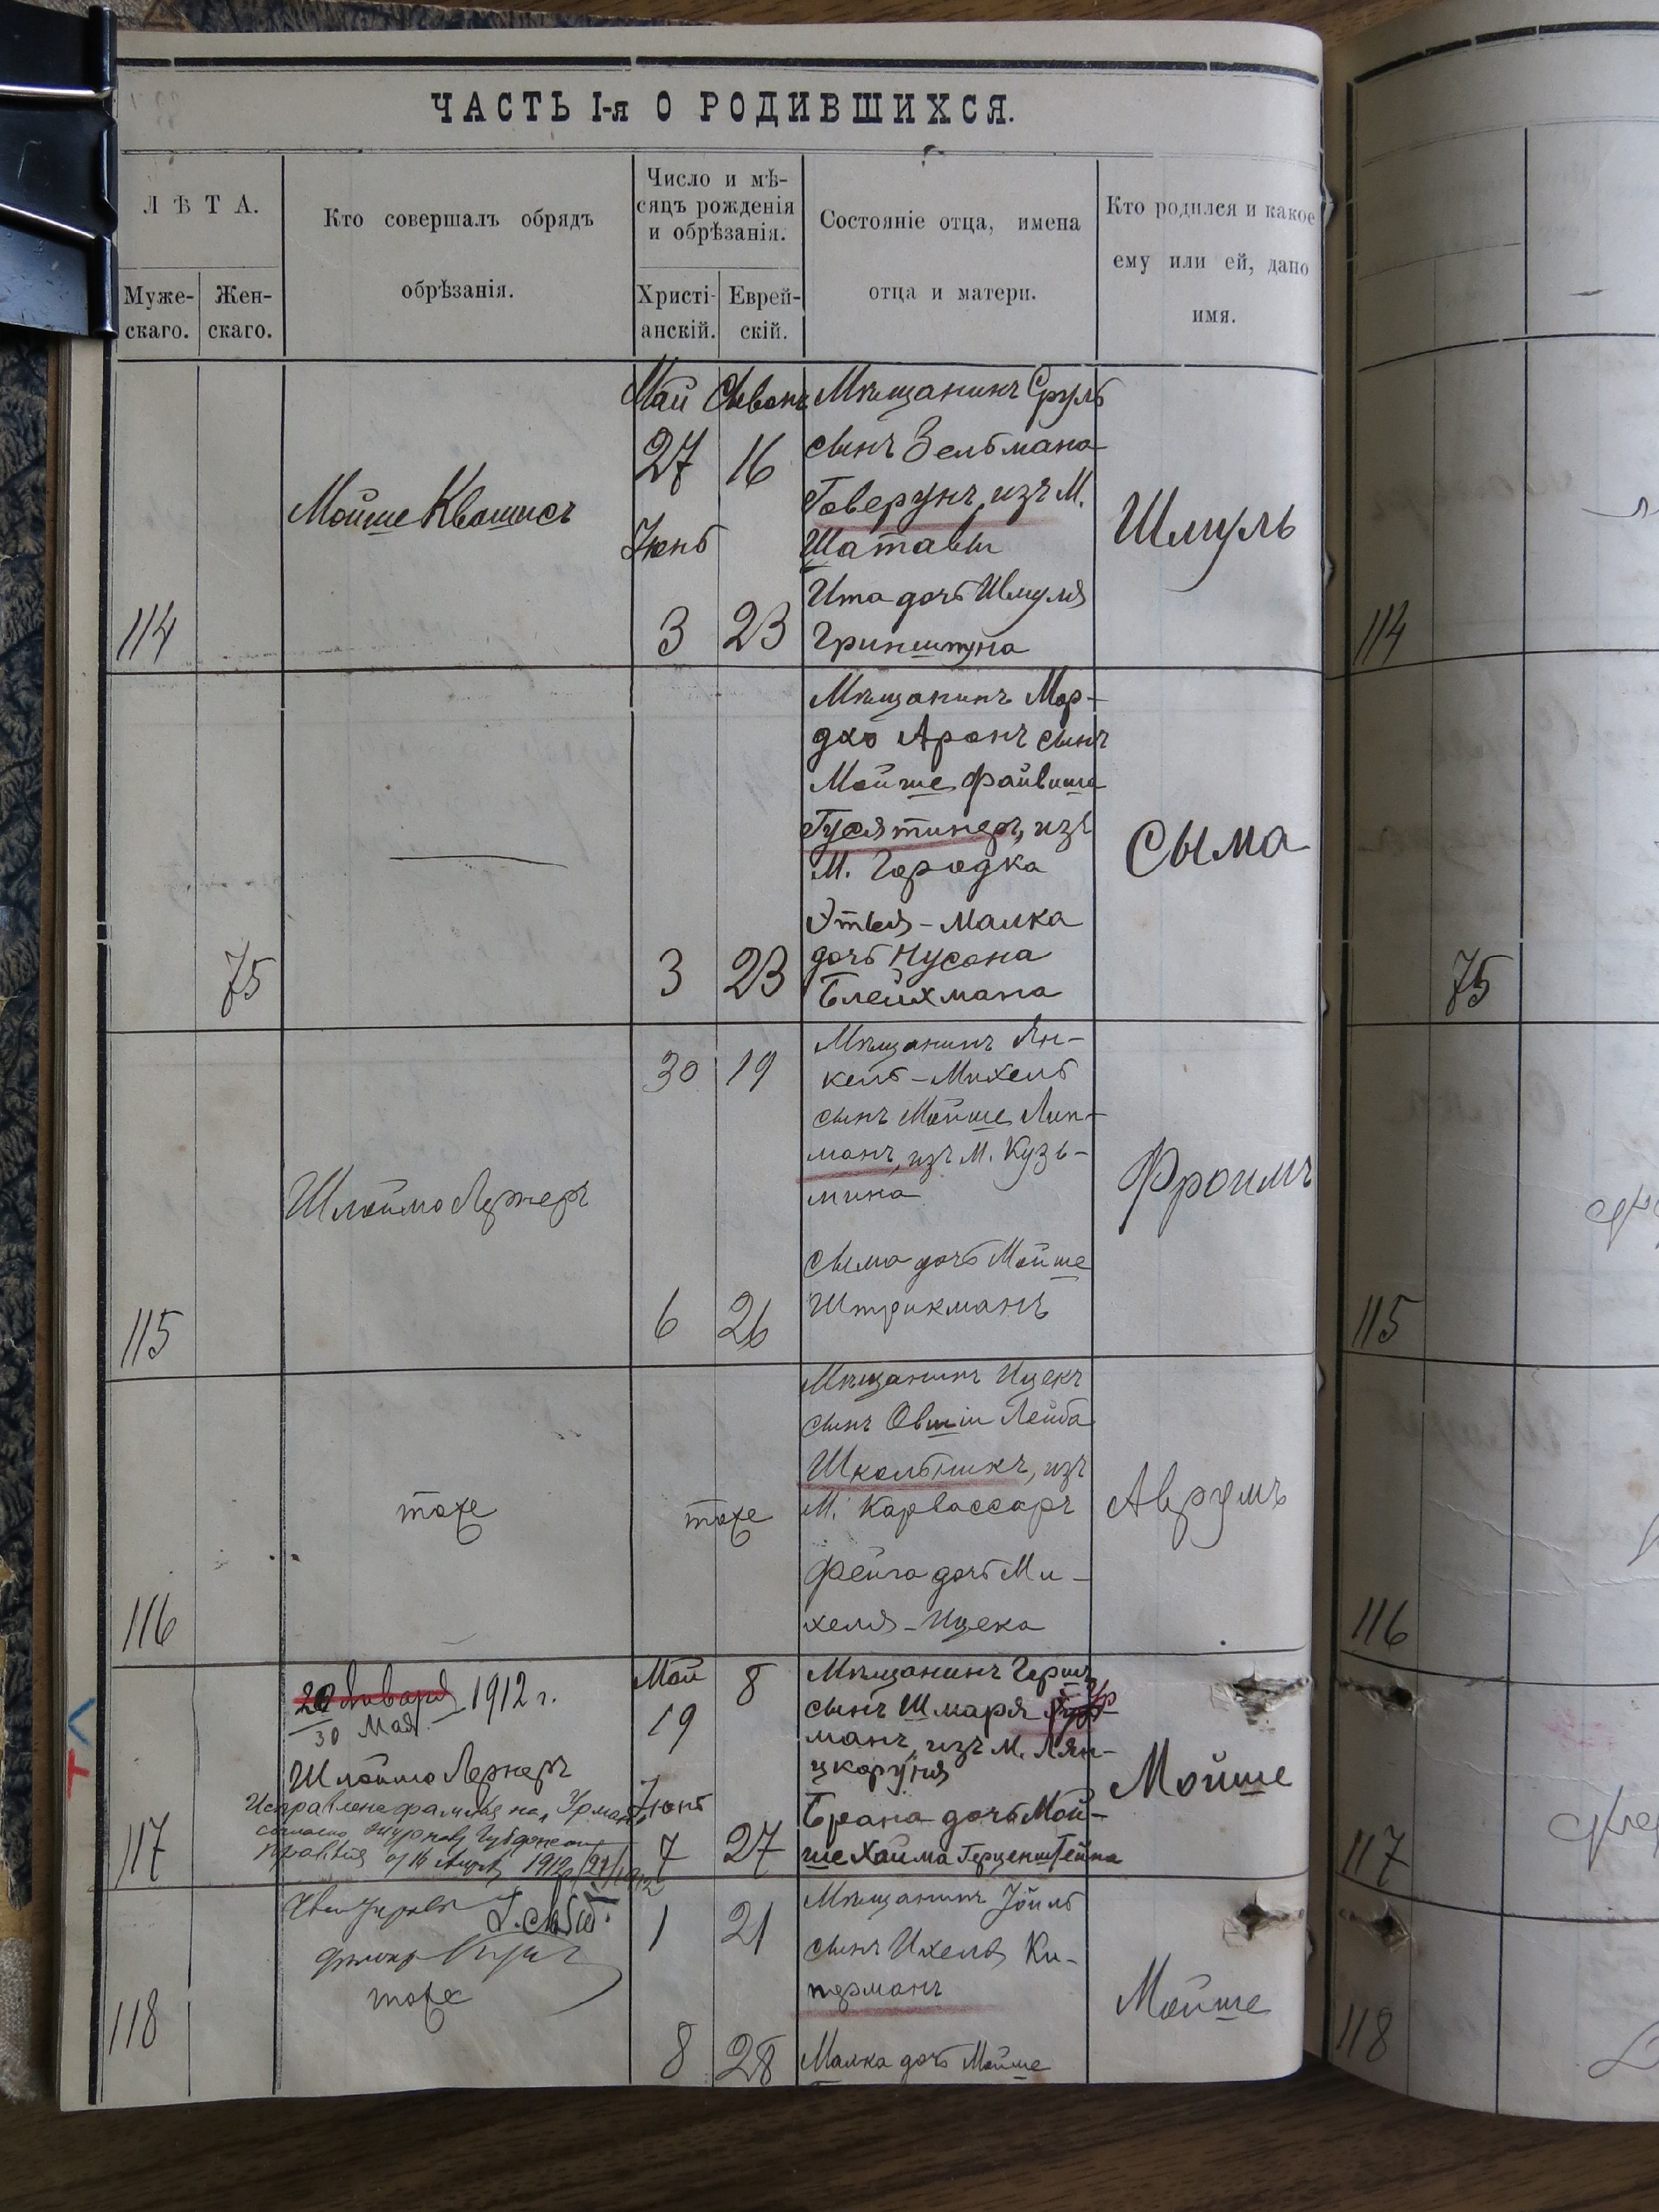 ЧАСТЬ I-я О РОДИВШИХСЯ.
ЛѢТА.
Муже-
скаго.
Жен-
скаго.
Кто совершалъ обрядъ
обрѣзанія.
Число и мѣ-
сяцъ рожденія
и обрѣзанія.
Христі-
анскій.
Еврей-
скій.
Состояніе отца, имена
отца и матери.
Кто родился и какое
ему или ей, дано
имя.
114
Мойше Квашисъ
Май Сивонъ
27 16
Іюнь
3 23
Мѣщанинъ Сруль
сынъ Зельмана
Говерунъ, изъ М.
Шатавы
Ита дочь Шмуля
Гринштуна
Шмуль
114
75
3 23
Мѣщанинъ Мор-
дхо Аронъ сынъ
Мойше Файвиша
Гусятинеръ, изъ
М. Городка
Этья-Малка
дочь Нусона
Блейхмана
Сыма
75
115
Шлоймо Лернеръ
30 19
6 26
Мѣщанинъ Ян-
кель-Михель
сынъ Мойше Лип-
манъ, изъ М. Кузь-
мина
Сыма дочь Мойше
Штрикманъ
Фроимъ
115
116
тоже
тоже
Мѣщанинъ Ицекъ
сынъ Овшіи Лейба
Школьникъ, изъ
М. Карвассаръ
Фейга дочь Ми-
хеля-Ицека
Аврумъ
116
117
20 Января 1912 г.
30 Мая.
Шлоймо Лернеръ
Исправлена фамилія на "Урманъ"
согласно журналу Губернскаго
Правленія 1912
Май 8
19
Іюнь
7 27
Мѣщанинъ Гершъ
сынъ Шмаря Ур-
манъ, изъ М. Лян-
цкоруня
Брана дочь Мой-
ше Хаима Герценштейна
Мойше
117
118
тоже
1 21
8 28
Мѣщанинъ Іойль
сынъ Ихеля Ки-
перманъ
Малка дочь Мойше
Мойше
118